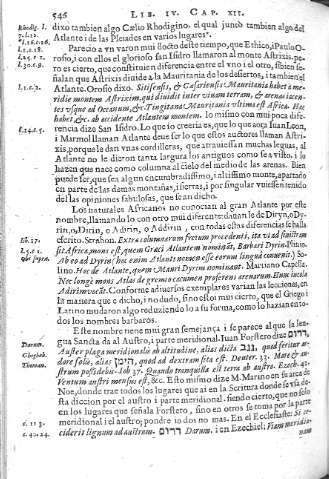 546 LIB. IV. CAP. XII.
dixo tambien algo Cælio Rhodigino. el qual junta tambien algo del
Atlante i de las Pleiades en varios lugares.
Parecio a vn varon mui docto deste tiempo, que Ethico, i Paulo O-
rosio, i con ellos el glorioso san Isidro llamaron al monte Astrixis. pe-
ro es cierto, que constituien diferencia entre vno i el otro, si bien se-
ñalan que Astrixis diuide a la Mauritania de los desiertos, i tambien el
Atlante. Orosio dixo. Sitifensis, & Cæsariensis Mauritania habet a me-
ridie montem Astrixim, qui diuidit inter viuam terram, & arenas iacen-
tes vsque ad Oceanum, & Tingitana Mauritania vltima est Africæ. Hæc
habet &c. ab occidente Atlantem montem. lo mismo con mui poca dife-
rencia dize San Isidro. Lo que io creeria es, que lo que aora Juan Leon,
i Marmol llaman Atlante deue ser lo que estos auctores llaman Astri-
xis, porque le dan vnas cordilleras, que atrauiessan muchas leguas, al
Atlante no le dieron tanta largura los antiguos como se a visto, i lo
hazen que nace como coluna al cielo del medio de las arenas. Bien
puede ser, que sea algun encumbradissimo, i altissimo monte, apartado
en parte de las damas montañas, i sierras, i por singular viniessen tenido
de las opiniones fabulosas, que se an dicho.
Los naturales Africanos no conocian al gran Atlante por este
nombre, llamando lo con otro mui diferente: danan le de Diryn, o Dy-
rin, o Dirin, o Adirin, o Addirin, con todas estas diferencias se halla
descrito. Strabon. Extra columnas cum fretum procedenti, ita vt ad sinistram
sit Africa, mons est, quem Graci Atlantem nominant, Barbari Dyrin. Plinio.
Ab eo ad Dyrin (hoc enim Atlanti nomen esse eorum lingua conuenit.) So-
lino. Hoc de Atlante, quem Mauri Dyrim nominant. Marciano Capella.
Nec longè mons Atlas de gremio cacumen proferens arenarum. Hunc incolæ
Adirim vocant. Conforme aduertios exemplares varian las lecciones, en
la manera que e dicho, i no dudo, sino es tot mui cierto, que el Griego i
Latino mudaron algo reduziendo lo a su forma, como lo hazian en to-
dos los nombres barbaros.
Este nombre tiene mui gran semejança i se parece al que la len-
gua Sancta da al Austro, i parte meridional. Iuan Forstero dize דרום
Auster plaga meridionalis ab altitudine, aliàs dicta נגב, quod feriatur ar-
dore solis, aliàs תימן, quod ad dextram sita est. Deuter. 33. Mare & au-
strum possidebis. Iob 37. Quando tranquilla est terra ab austro. Ezech. 40.
Ventum austri mensus est, &c. Esto mismo dize M. Marino en su arca de
Noe, donde trae todos los lugares que ai en la Scritura donde se vsa de-
sta diccion por el austro i parte meridional. siendo cierto, que no solo
en los lugares que señala Forstero, sino en otros se toma por la parte
meridional i el austro; pondre io dos no mas. En el Ecclesiaste: Si ce-
ciderit lignum ad austrum. דרום Darum. i en Ezechiel: Viam meridia-
nam
Rhodig. l.
Darum.
Ghegheb.
Theman.
c. 11. 3.
c. 40. 24.